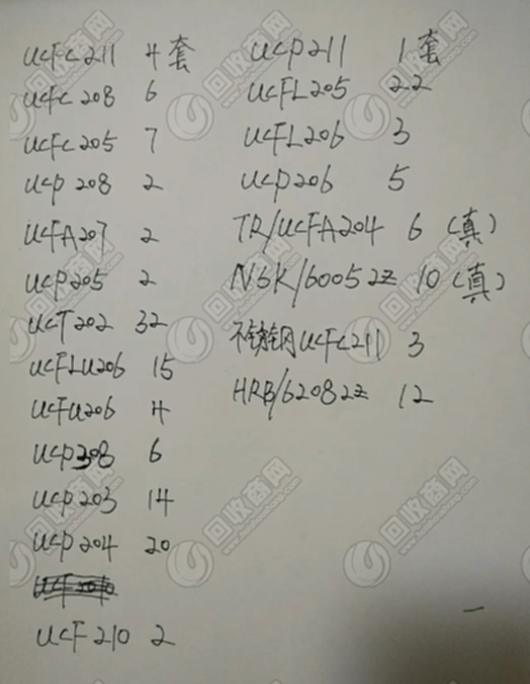 UCFC211 4套
UCFC208 6
UCFC205 7
UCP208 2
UCFA207 2
UCP205 2
UCT202 32
UCFLU206 15
UCFU206 4
UCP308 6
UCP203 14
UCP204 20
UCF210 2
UCP211 1套
UCFL205 22
UCFL206 3
UCP206 5
TR/UCFA204 6 (真)
NSK/60052Z 10 (真)
不锈钢UCFC211 3
HRB/62082Z 12
回收商网